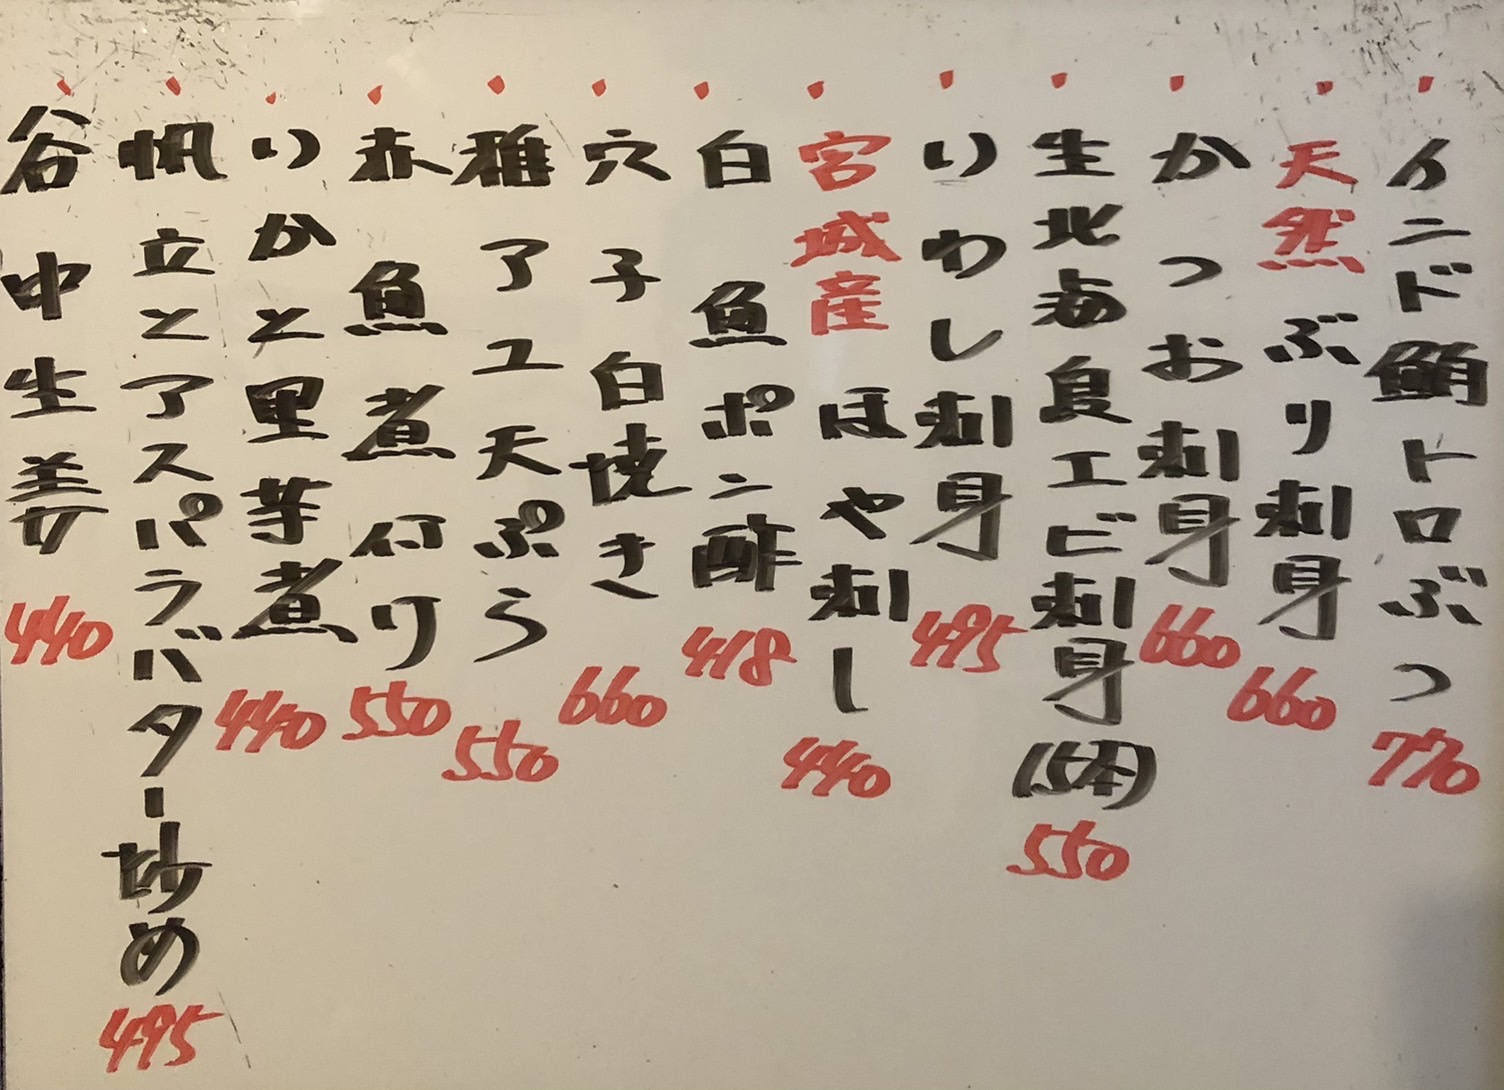 インド鮪トロぶつ 770
天然ぶり刺身 660
かつお刺身 660
生北海良エビ刺身(15本) 550
いわし刺身 495
宮城産ほや刺し 440
白魚ポン酢 418
穴子白焼き 660
稚アユ天ぷら 550
赤魚煮付け 550
いかと里芋煮 440
帆立とアスパラバター炒め 495
谷中生姜 440